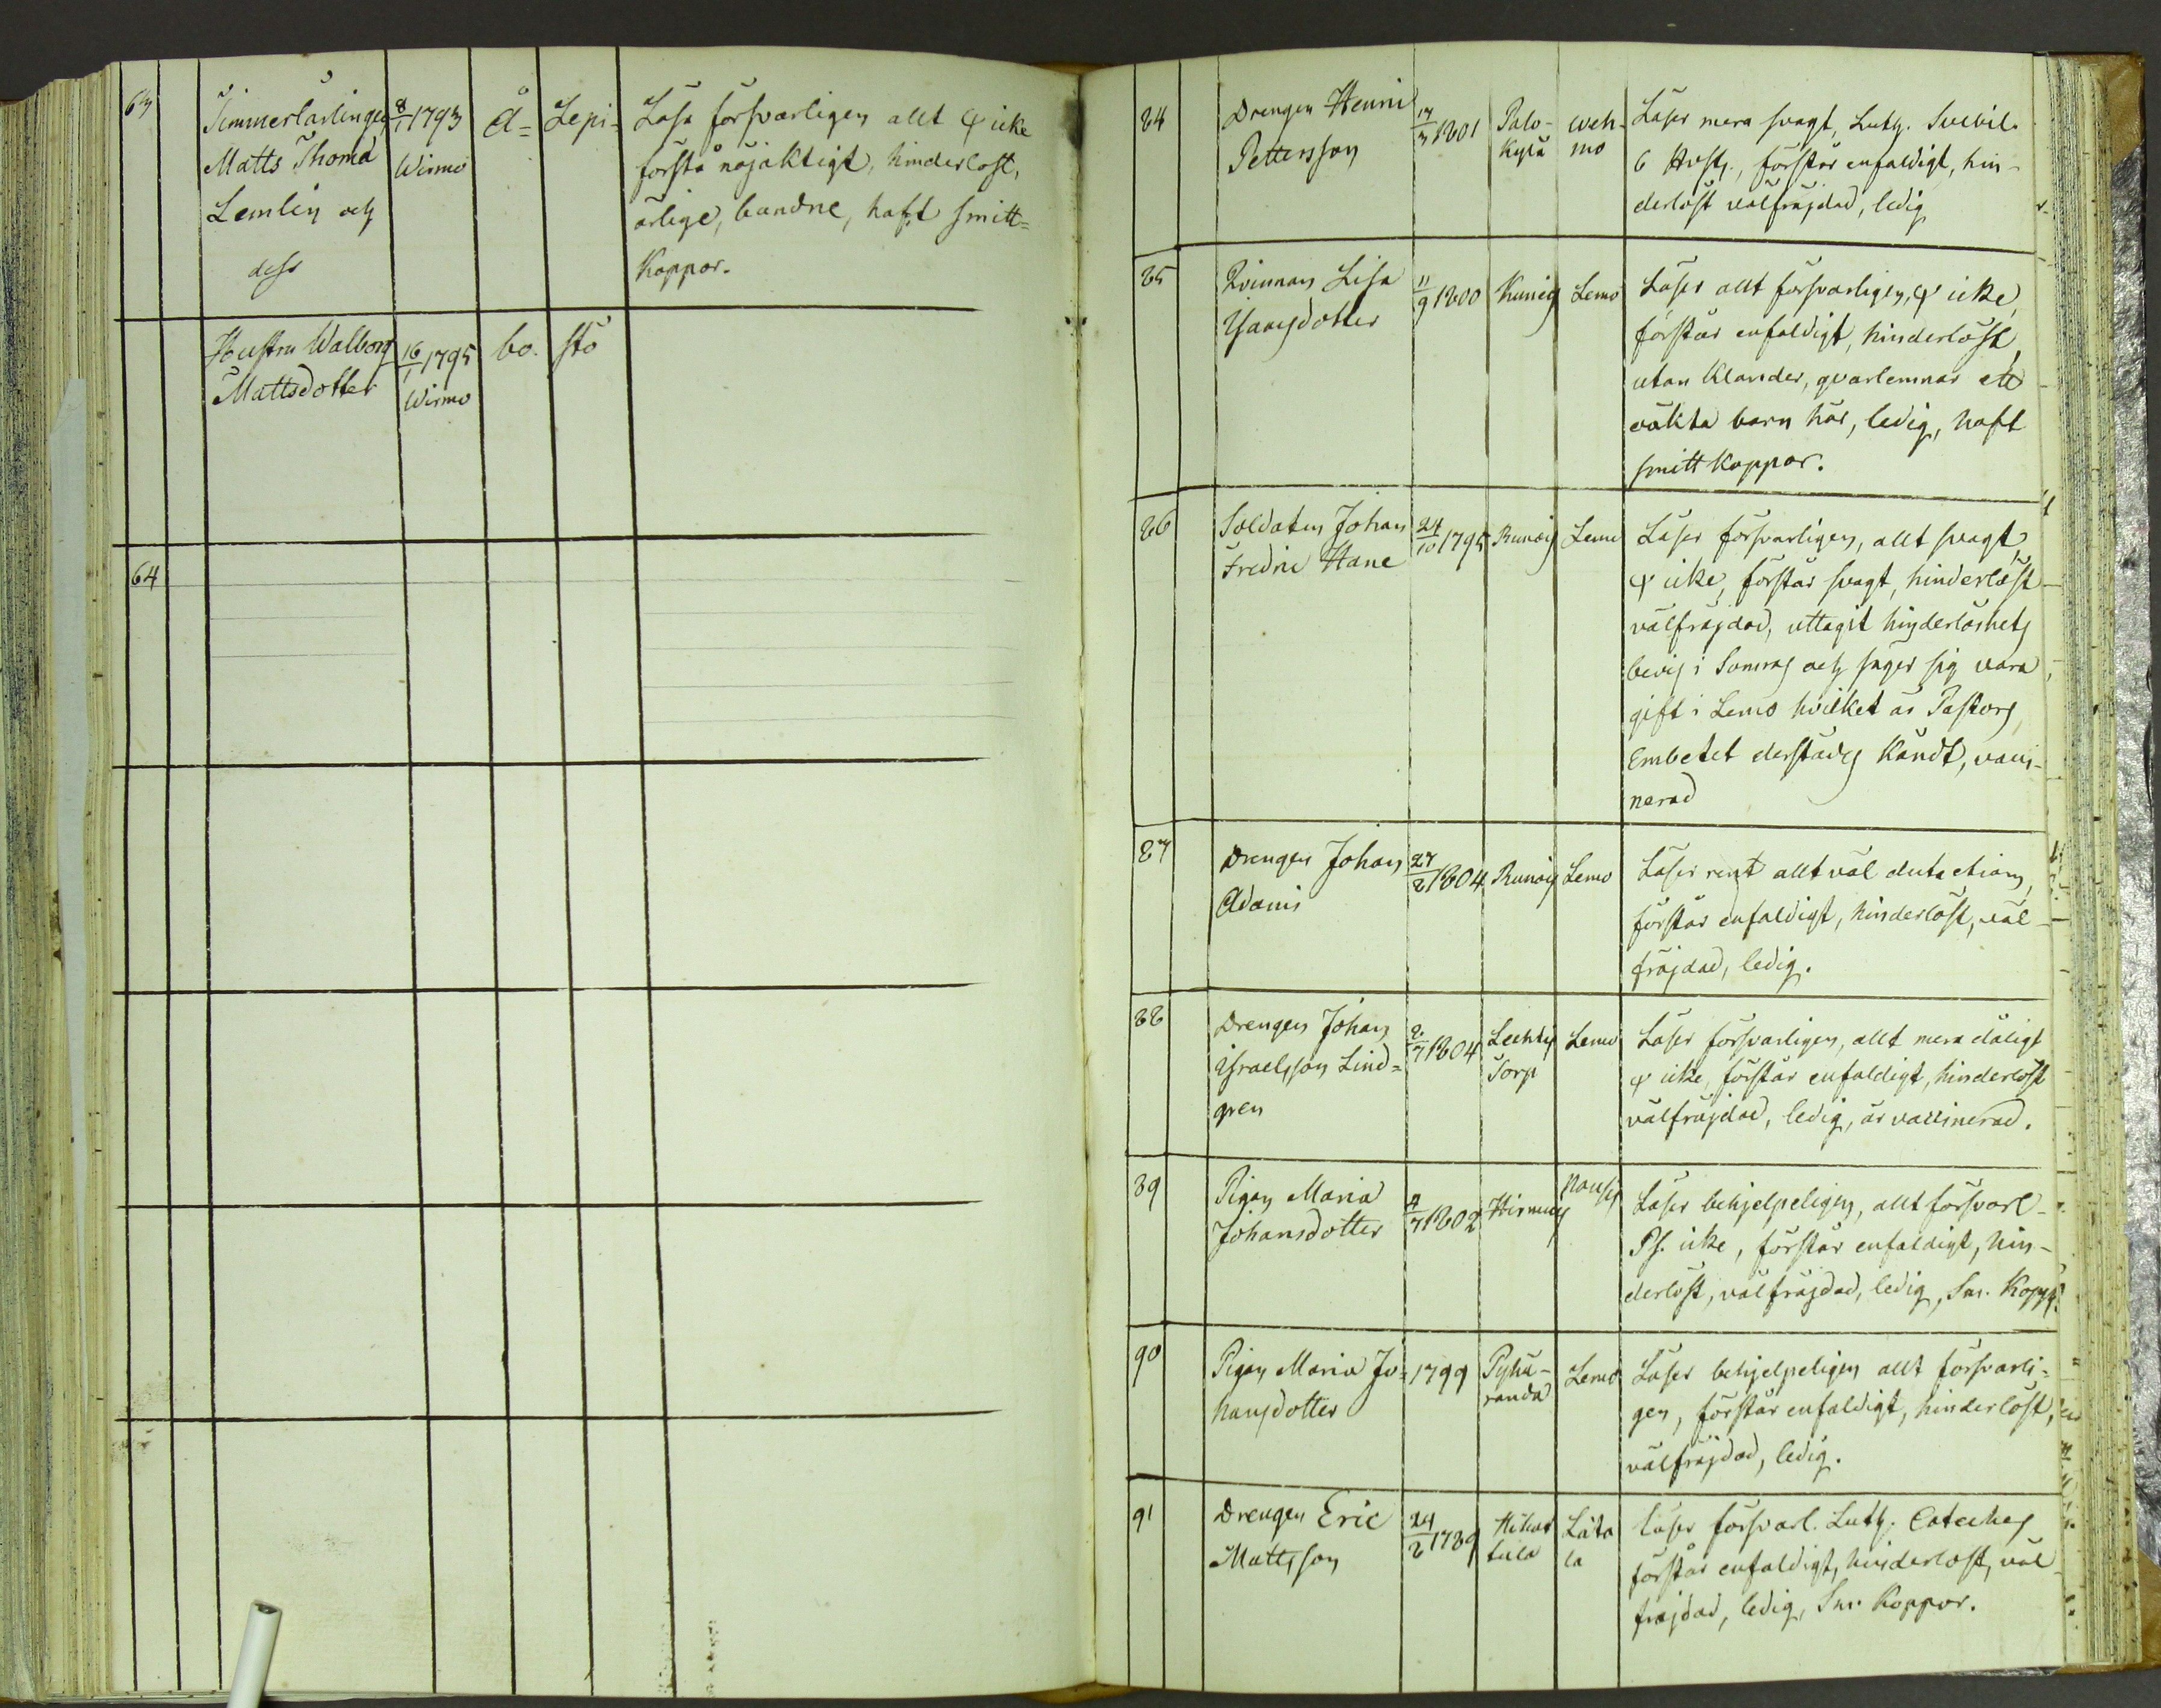 63
Timmerlärlingen
Matts Thoma
Lemlin och
dess
8/1 1793
Wirmo
Å=
Lepi=
Läsa försvarligen allt Ψ icke
förstå nöjaktigt, hinderlöst,
ärlige, bandne, haft smitt=
Koppor.
Hustru Walborg
Mattsdotter
16/1 1795
Wirmo
bo.
stö
64
84
Drengen Henric
Pettersson
17/3 1801
Palo-
kylä
Weh-
mo
Läser mera svagt, Luth. Svebil.
6 Hvst., förstår enfaldigt, hin-
derlöst välfräjdad, ledig
85
Qvinnan Lisa
Isaacsdotter
11/9 1800
Lemo
Läser allt försvarligen, Ψ icke,
förstår enfaldigt, hinderlöst,
utan Klander, qvarlemnar ett
oäkta barn här, ledig, haft
smittkoppor.
86
Soldaten Johan
Fredric Hane
24/10 1795
Runois
Lemo
Läser försvarligen, allt svagt,
Ψ icke, förstår svagt, hinderlöst
välfräjdad, uttagit hinderlöshets
bevis i Somras och säger sig vara
gift i Lemo hvilket är Pastors
Embetet derstädes Kändt, vacci-
nerad
87
Drengen Johan
Adami
27/8 1804
Runois
Lemo
Läser rent allt väl
förstår enfaldigt, hinderlöst, väl-
fräjdad, ledig.
88
Drengen Johan
Israelsson Lind=
gren
2/7 1804
Lechtis
Torp
Lemo
Läser försvarligen, allt mera dåligt
Ψ icke, förstår enfaldigt, hinderlöst
välfräjdad, ledig, är vaccinerad.
89
Pigan Maria
Johansdotter
Nousis
Läser behjelpeligen, allt försvarl-
Ps. icke, förstår enfaldigt, hin-
derlöst, välfräjdad, ledig, Sm. Kopp.
90
Pigan Maria Jo=
hansdotter
1799
Pyhä-
randa
Lemo
Läser behjelpeligen allt försvarli-
gen, förstår enfaldigt, hinderlöst,
välfräjdad, ledig.
91
Drengen Eric
Mattsson
24/8 1789
Läto
la
läser försvarl. Luth. Cateches
förstår enfaldigt, hinderlöst, väl
fräjdad, ledig, Sm. Koppor.